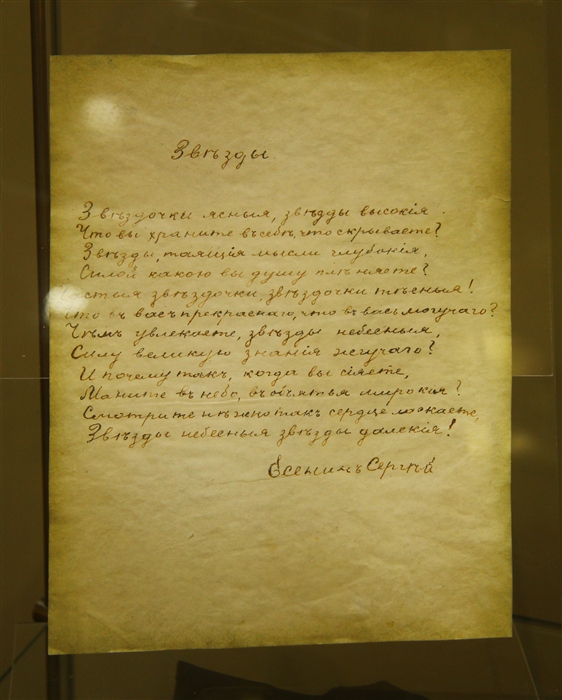 Звѣзды
Звѣздочки ясныя, звѣзды высокія.
Что вы храните въ себѣ, что скрываете?
Звѣзды, таящія мысли глубокія,
Силой какою вы душу плѣняете?
стыя звѣздочки, звѣздочки тѣсныя!
Что въ васъ прекраснаго, что въ васъ могучаго?
Чѣмъ увлекаете, звѣзды небесныя,
Силу великую знанія жгучаго?
И почему такъ, когда вы сіяете,
Маните въ небо, въ объятья широкія?
Смотрите нѣжно такъ сердце ласкаете,
Звѣзды небесныя звѣзды далекія!
Есенинъ Сергѣй